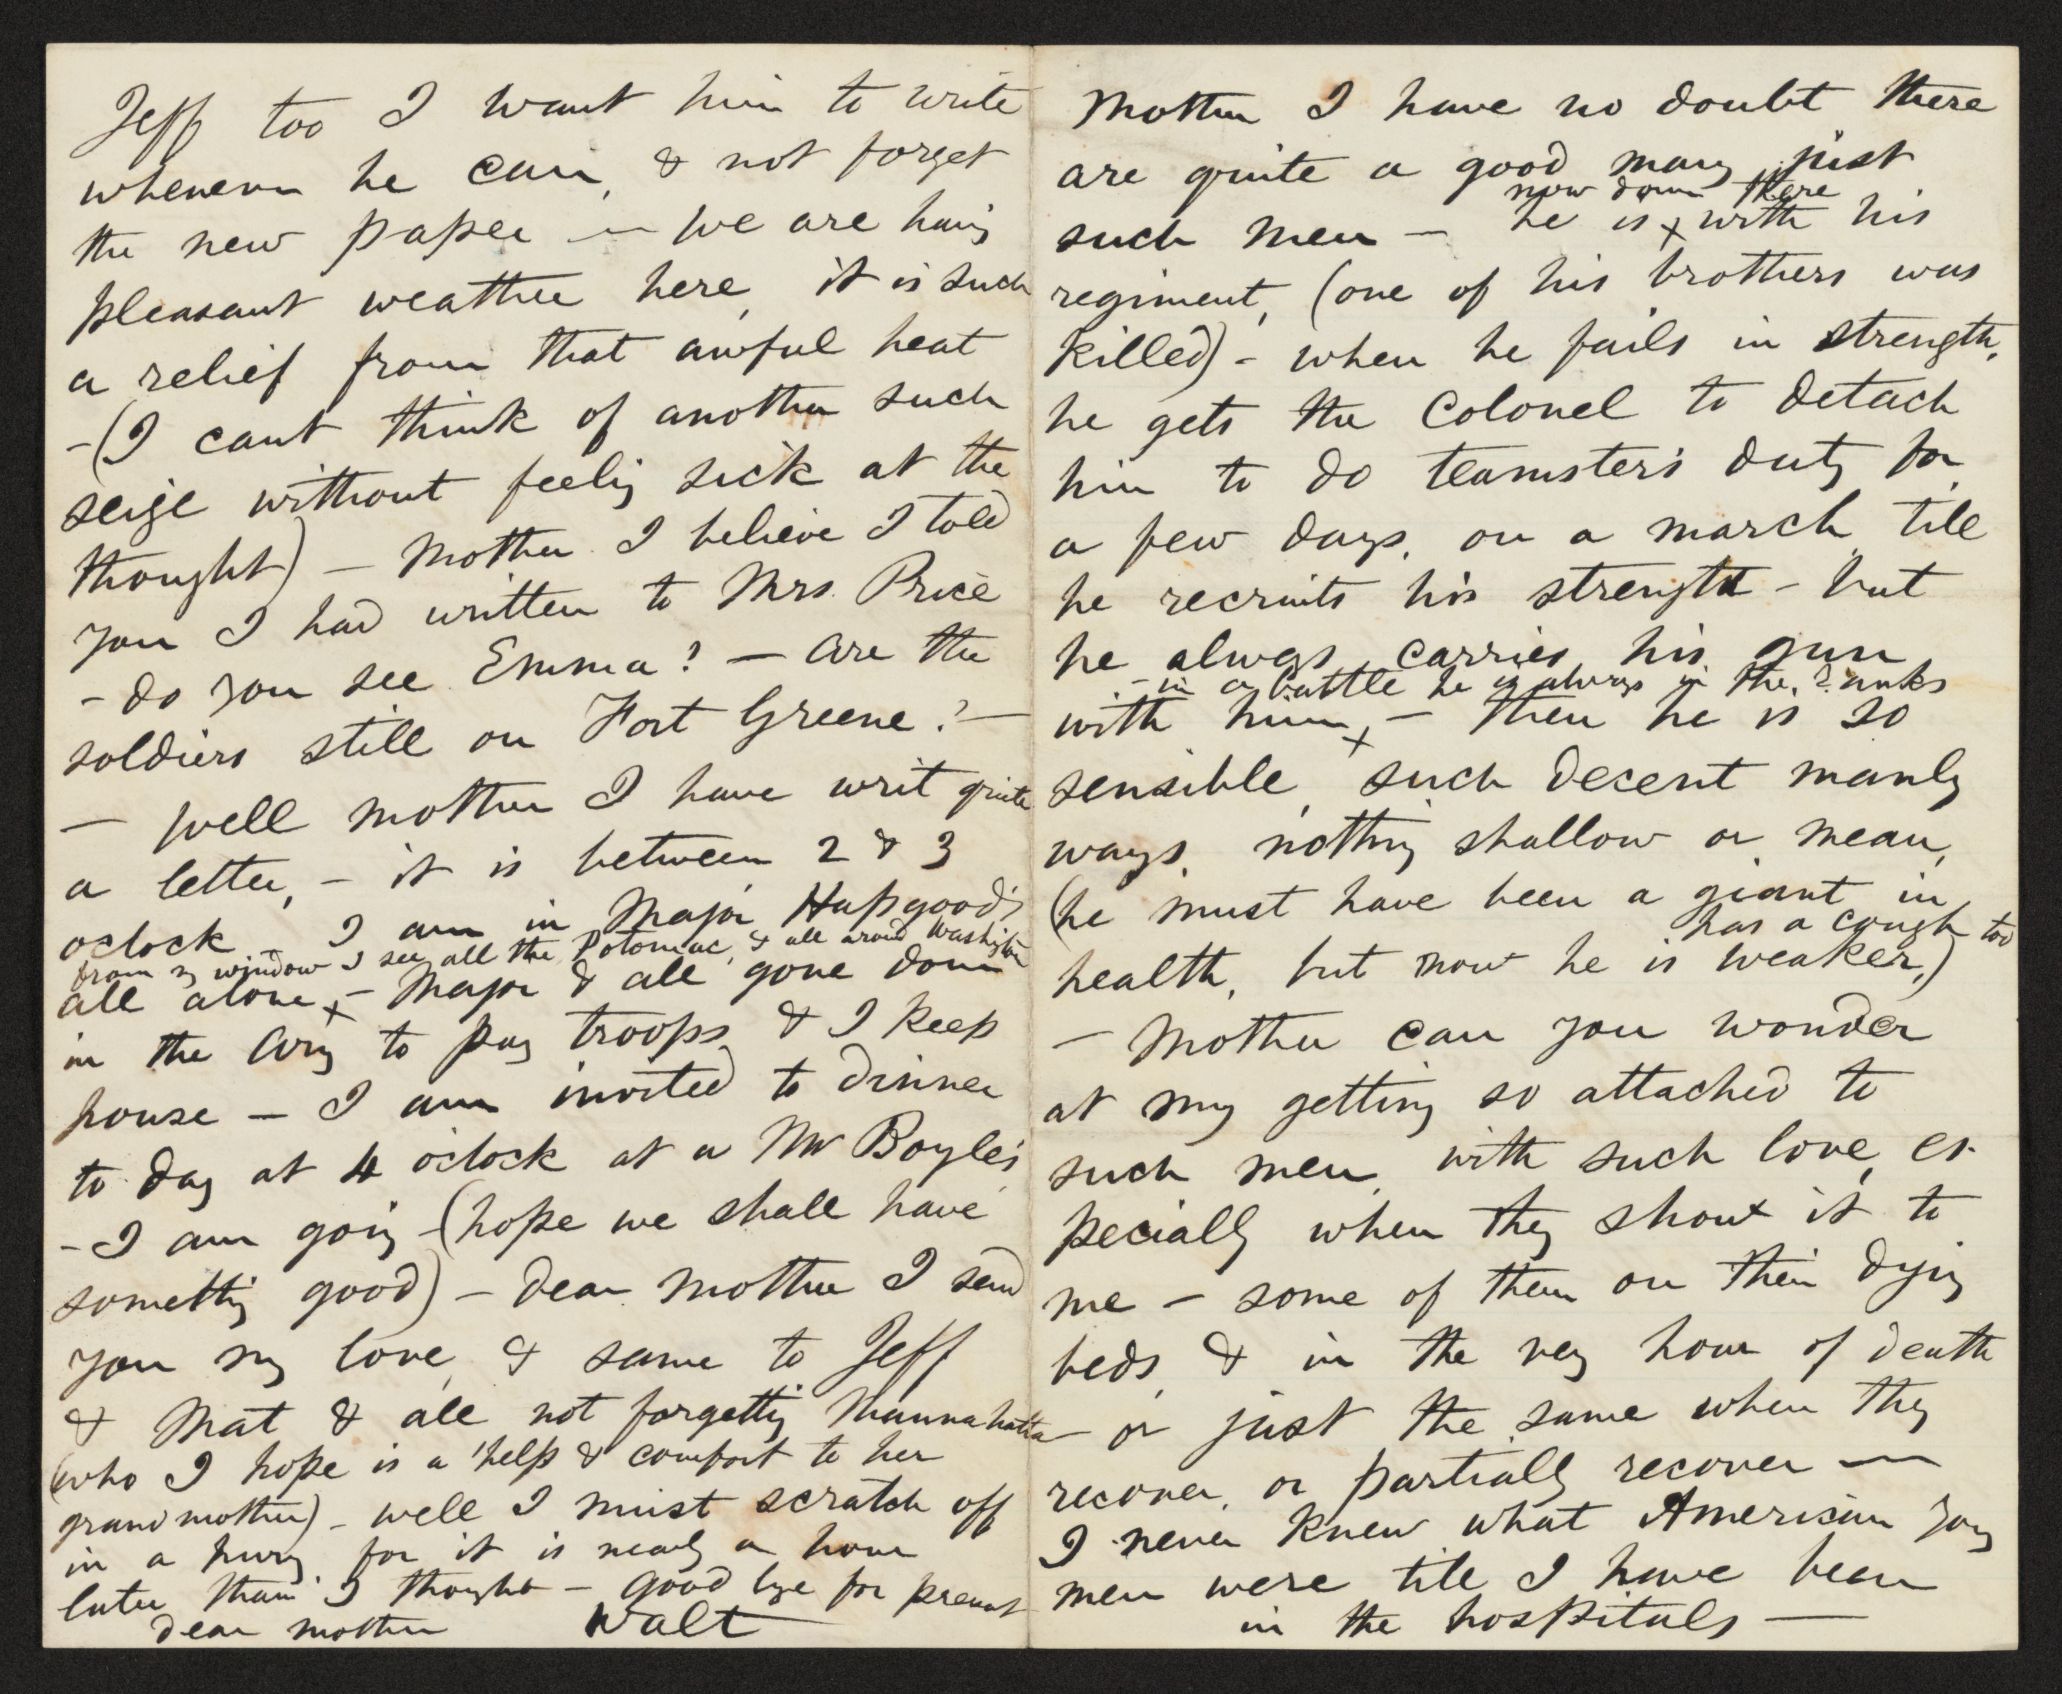 Jeff too I want him to write
whenever he can, & not forget
the new paper — We are having
pleasant weather here, it is such
a relief from that awful heat
- (I cant think of another such
seige without feeling sick at the
thought) — Mother I believe I told
you I had written to Mrs. Price
- do you see Emma? — are the
soldiers still on Fort Greene? —
— well mother I have writ quite
a letter, - it is between 2 & 3
oclock - I am in Major Hapgood's
from my window I see all the Potomac, & all around Washington
all alone x — Major & all gone down
in the army to pay troops, & I keep
house — I am invited to dinner
to day at 4 o'clock at a Mr Boyle's,
- I am going - (hope we shall have
something good) — dear mother I send
you my love, & same to Jeff
& Mat & all not forgetting Mannahatta
(who I hope is a help & comfort to her
grandmother) - well I must scratch off
in a hurry for it is nearly an hour
later than I thought — Good bye for present
dear mother Walt
Mother I have no doubt there
are quite a good many just
now down there
such men — he is x with his
regiment, (one of his brothers was
killed) - when he fails in strength,
he gets the Colonel to detach
him to do teamster's duty for
a few days, on a march, till
he recruits his strength - but
he always carries his gun
- in a battle he is always in the ranks
with him x — then he is so
sensible, such decent manly
ways, nothing shallow or mean,
(he must have been a giant in
has a cough too
health, but now he is weaker,)
— Mother can you wonder
at my getting so attached to
such men, with such love, es-
pecially when they show it to
me — some of them on their dying
beds, & in the very hour of death
- or just the same when they
recover, or partially recover —
I never knew what American young
men were till I have been
in the hospitals —